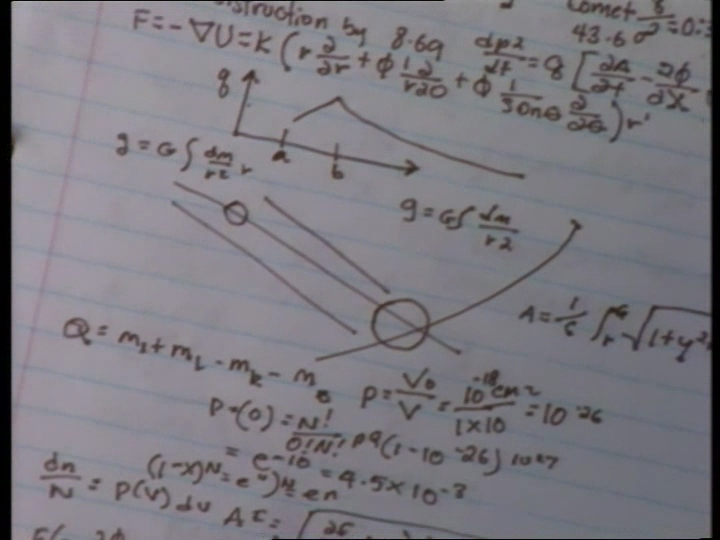 struction by 8.69
Comet 8/σ² = 0.
43.60
F = -∇U = K (r ∂/∂r + ϕ 1/r ∂/∂θ + ϕ 1/sin θ ∂/∂θ) r'
dp2/dt = q [∂A/∂t - ∂ϕ/∂x
q
a b
g = G ∫ dm/r2 r
g = G ∫ dm/r2
A = 1/c ∫ √1 + y²
Q = m1 + mL - mk - m0
P = V0/V = 10⁻¹⁸cm²/1×10 = 10⁻²⁶
P-(0) = N!/0!N! pq (1-10⁻²⁶) 10²⁷
= e-10 = 4.5×10⁻³
(1-x)N = e
dn/N = P(V) dv